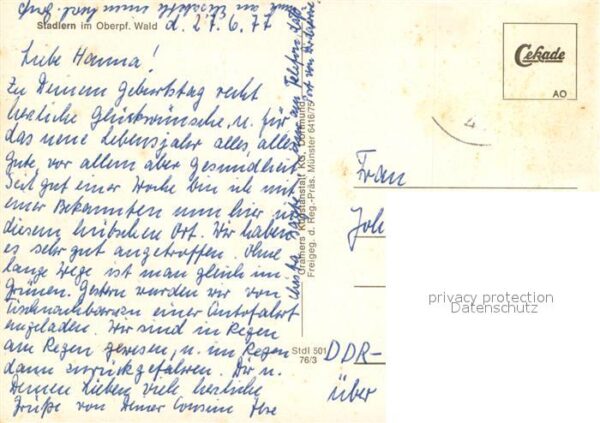 Stadlern im Oberpf. Wald d. 27.6.77
Liebe Hanna!
Zu Deinem Geburtstag recht
herzliche Glückwünsche, u. für
das neue Lebensjahr alles, alles
Gute, vor allem aber Gesundheit.
Seit gut einer Woche bin ich mit
einer Bekannten nun hier in
diesem hübschen Ort. Wir haben
es sehr gut angetroffen. Ohne
lange Wege ist man gleich im
Grünen. Gestern wurden wir von
Tischnachbarn zu einer Autofahrt
eingeladen. Wir sind in Regen
am Regen gewesen, u. im Regen
dann zurückgefahren. Dir u.
Deinen Lieben viele herzliche
Grüße von Deiner Cousine Ilse
Cramers Kunstanstalt KG, Dortmund
Freigeg. d. Reg.-Präs. Münster 6416/75
Stdl 501
76/3
Cekade
AO
4
Frau
Joh
privacy protection
Datenschutz
DDR-
über